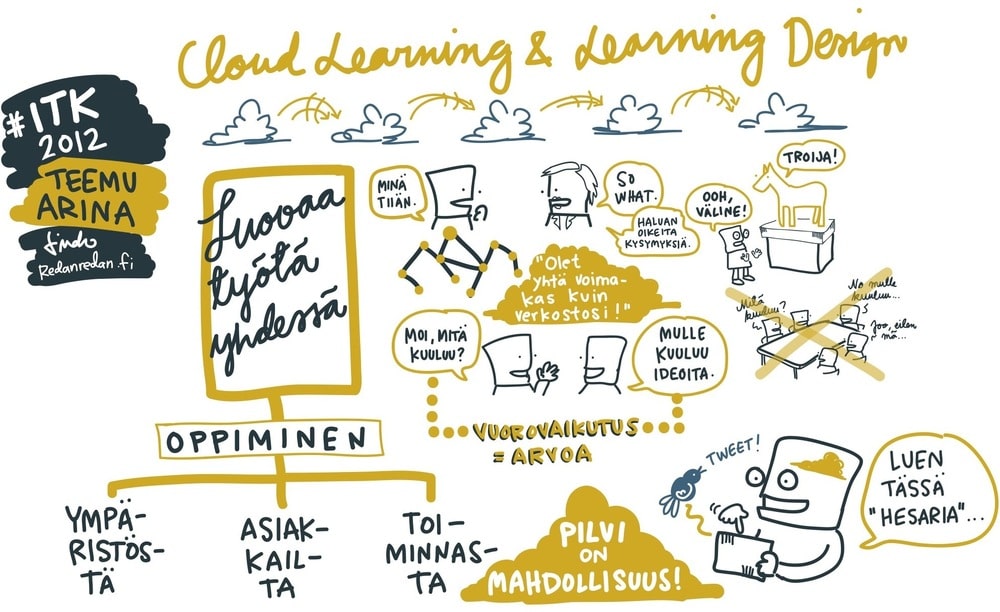 Cloud Learning & Learning Design
#ITK
2012
TEEMU
ARINA
Redanredan.fi
Luovaa
työtä
yhdessä
OPPIMINEN
YMPÄ-
RISTÖS-
TÄ
ASIAK-
KAIL-
TA
TOI-
MINNAS-
TA
MINÄ
TIIÄN.
SO
WHAT.
HALUAN
OIKEITA
KYSYMYKSIÄ.
OOH,
VÄLINE!
TROIJA!
"Olet
yhtä voima-
kas kuin
verkostosi!"
MOI, MITÄ
KUULUU?
MULLE
KUULUU
IDEOITA.
Mitä
kuuluu?
No mulle
kuuluu...
Joo, eilen
mä...
VUOROVAIKUTUS
= ARVOA
PILVI
ON
MAHDOLLISUUS!
TWEET!
LUEN
TÄSSÄ
"HESARIA"...